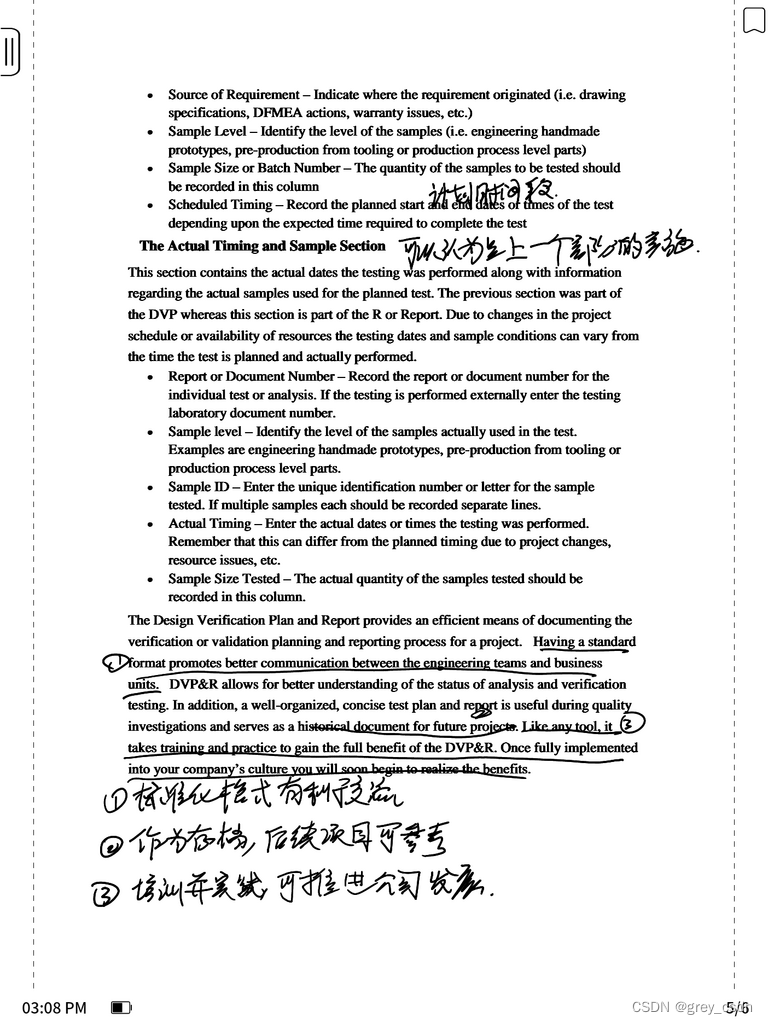 • Source of Requirement – Indicate where the requirement originated (i.e. drawing
specifications, DFMEA actions, warranty issues, etc.)
• Sample Level – Identify the level of the samples (i.e. engineering handmade
prototypes, pre-production from tooling or production process level parts)
• Sample Size or Batch Number – The quantity of the samples to be tested should
be recorded in this column
计划时间段.
• Scheduled Timing – Record the planned start and end dates or times of the test
depending upon the expected time required to complete the test
The Actual Timing and Sample Section 可以认为是上一个部分的实施.
This section contains the actual dates the testing was performed along with information
regarding the actual samples used for the planned test. The previous section was part of
the DVP whereas this section is part of the R or Report. Due to changes in the project
schedule or availability of resources the testing dates and sample conditions can vary from
the time the test is planned and actually performed.
• Report or Document Number – Record the report or document number for the
individual test or analysis. If the testing is performed externally enter the testing
laboratory document number.
• Sample level – Identify the level of the samples actually used in the test.
Examples are engineering handmade prototypes, pre-production from tooling or
production process level parts.
• Sample ID – Enter the unique identification number or letter for the sample
tested. If multiple samples each should be recorded separate lines.
• Actual Timing – Enter the actual dates or times the testing was performed.
Remember that this can differ from the planned timing due to project changes,
resource issues, etc.
• Sample Size Tested – The actual quantity of the samples tested should be
recorded in this column.
The Design Verification Plan and Report provides an efficient means of documenting the
verification or validation planning and reporting process for a project. Having a standard
① format promotes better communication between the engineering teams and business
units. DVP&R allows for better understanding of the status of analysis and verification
testing. In addition, a well-organized, concise test plan and report is useful during quality
investigations and serves as a historical document for future projects. Like any tool, it ③
takes training and practice to gain the full benefit of the DVP&R. Once fully implemented
into your company's culture you will soon begin to realize the benefits.
① 标准化格式有利于交流
② 作为存档, 后续项目可参考
③ 培训并实践, 可推进公司发展.
03:08 PM CSDN @grey_csdn 5/6